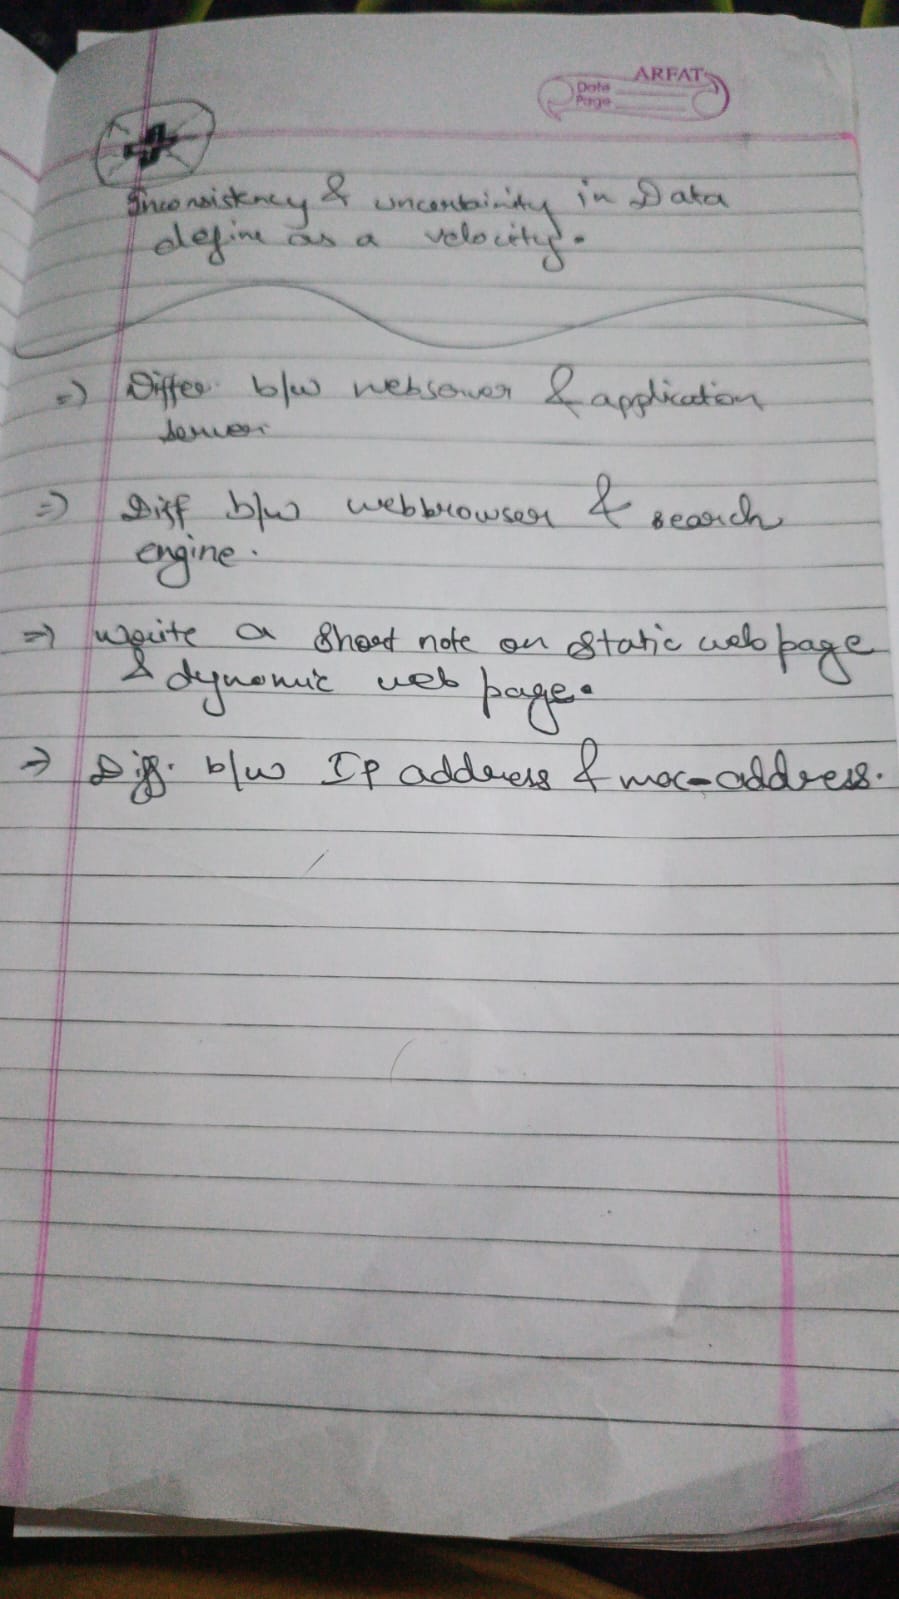 ARFAT
Date
Page
Inconsistency & uncertainity in Data
define as a velocity.
=) Differ. b/w webserver & application
server.
=) Diff b/w webbrowser & search
engine.
=) Write a short note on static web page
& dynamic web page.
=> Diff. b/w IP address & mac-address.